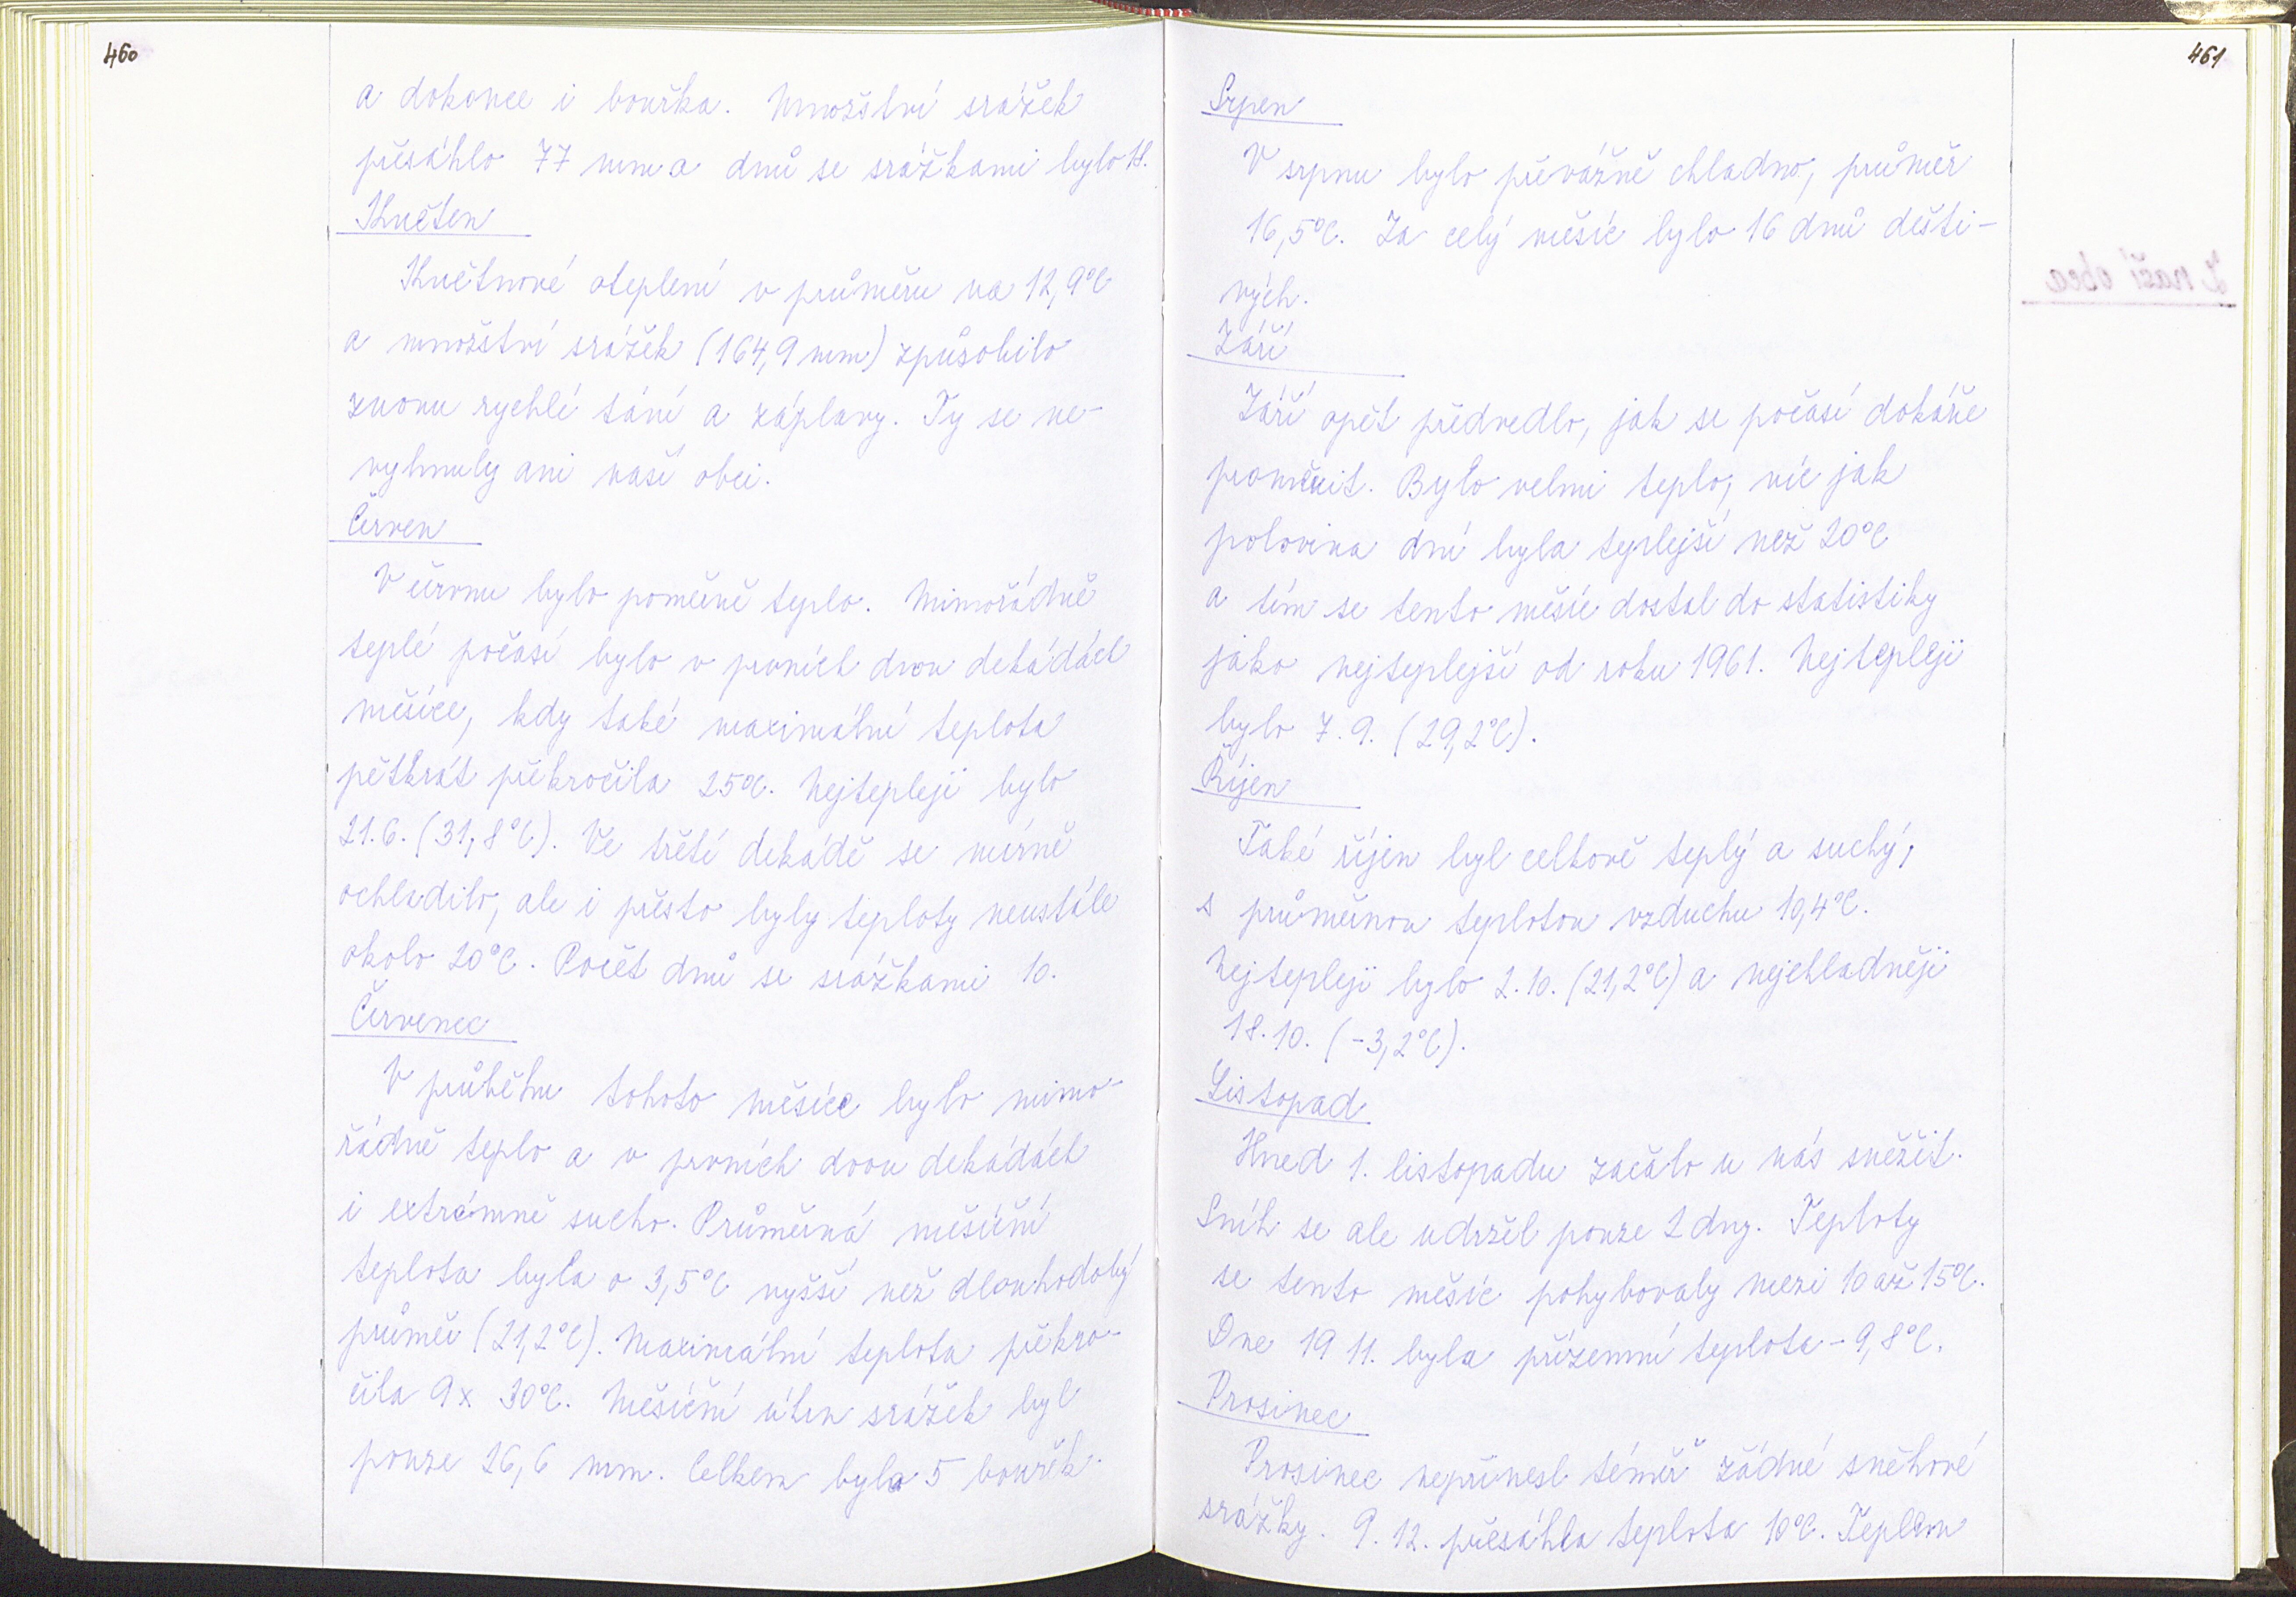 460
a dokonce i bouřka. Množství srážek
přesáhlo 77 mm a dnů se srážkami bylo
Květen
Květnové oteplení v průměru na 12,9°C
a množství srážek (164,9 mm) způsobilo
znovu rychlé tání a záplavy. Ty se ne-
vyhnuly ani naší obci.
Červen
V červnu bylo poměrně teplo. Mimořádně
teplé počasí bylo v prvních dvou dekádách
měsíce, kdy také maximální teplota
pětkrát překročila 25°C. Nejtepleji bylo
21.6. (31,8°C). Ve třetí dekádě se mírně
ochladilo, ale i přesto byly teploty neustále
okolo 20°C. Počet dnů se srážkami 10.
Červenec
V průběhu tohoto měsíce bylo mimo-
řádně teplo a v prvních dvou dekádách
i extrémně sucho. Průměrná měsíční
teplota byla o 3,5°C vyšší než dlouhodobý
průměr (21,2°C). Maximální teplota překro-
čila 9x 30°C. Měsíční úhrn srážek byl
pouze 26,6 mm. Celkem bylo 5 bouřek.
461
Srpen
V srpnu bylo převážně chladno, průměr
16,5°C. Za celý měsíc bylo 16 dnů dešti-
vých.
Září
Září opět předvedlo, jak se počasí dokáže
proměnit. Bylo velmi teplo, víc jak
polovina dní byla teplejší než 20°C
a tím se tento měsíc dostal do statistiky
jako nejteplejší od roku 1961. Nejtepleji
bylo 7.9. (29,2°C).
Říjen
Také říjen byl celkově teplý a suchý,
s průměrnou teplotou vzduchu 10,4°C.
Nejtepleji bylo 2.10. (21,2°C) a nejchladněji
18.10. (-3,2°C).
Listopad
Hned 1. listopadu začalo u nás sněžit.
Sníh se ale udržel pouze 2 dny. Teploty
se tento měsíc pohybovaly mezi 10 až 15°C.
Dne 19 11. byla přízemní teplota -9,8°C.
Prosinec
Prosinec nepřinesl téměř žádné sněhové
srážky. 9.12. přesáhla teplota 10°C. Teplou